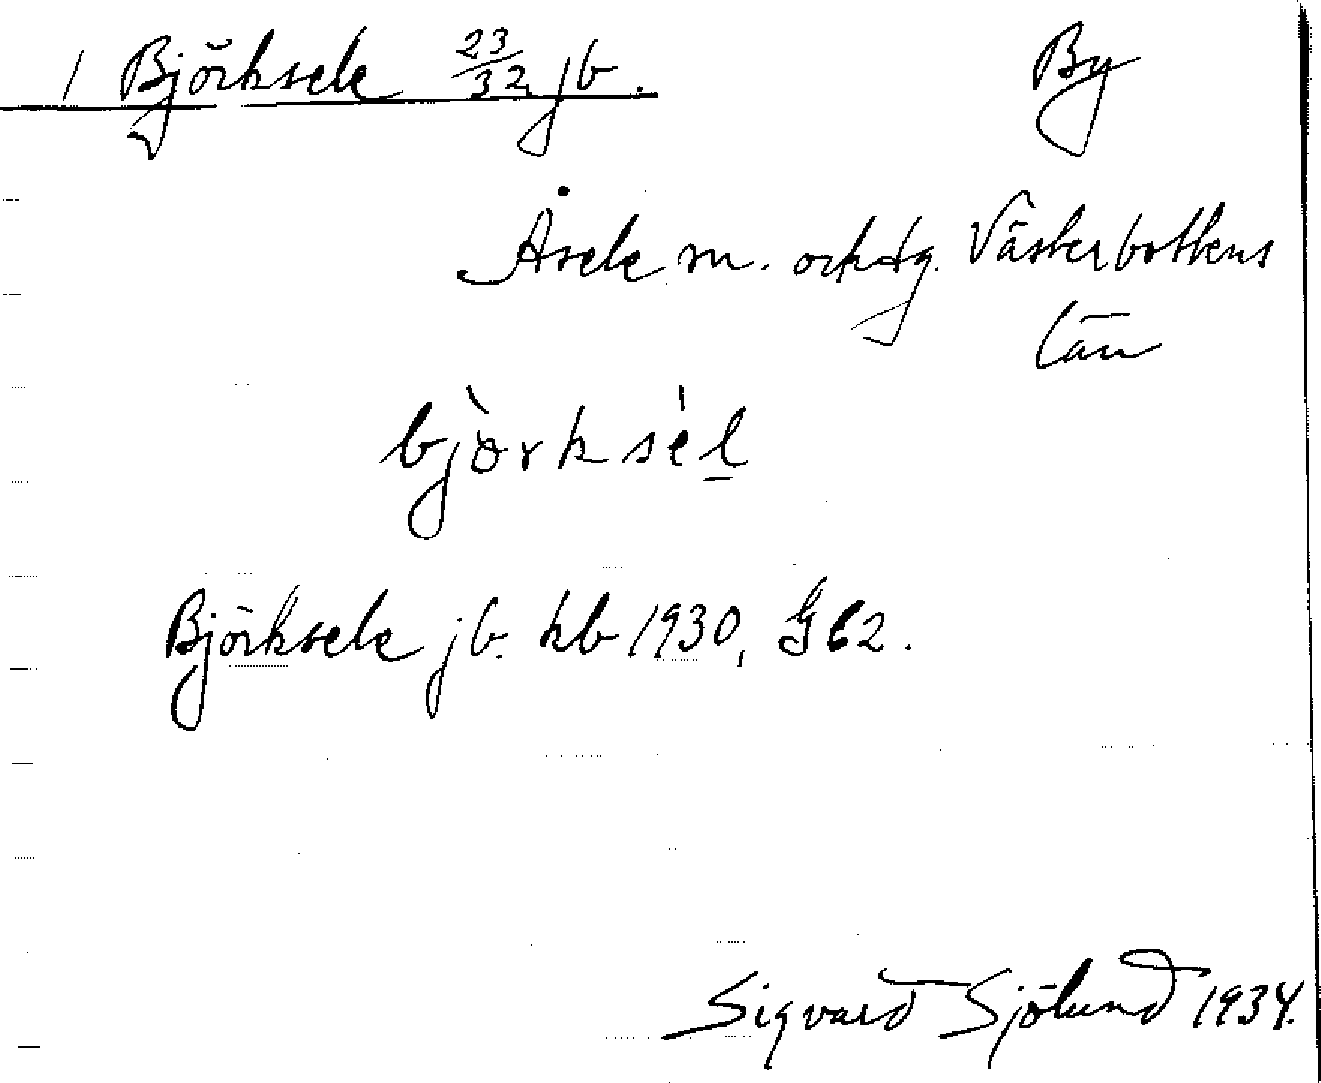 1 Björksele 23/32 jb. By
Åsele sn. och tg. Västerbottens
län
bjòrksèl
Björksele jb. kb 1930, G62.
Sigvard Sjölund 1934.